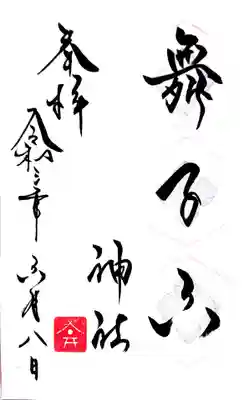 舞子六
神社
奉拝
令和三年 六月八日